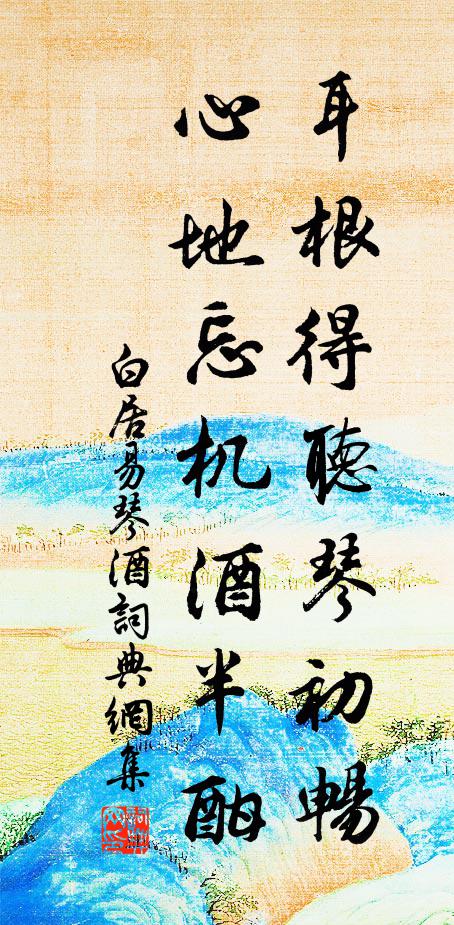 耳根得聽琴初暢
心地忘机酒半酣
白居易琴酒詞典網集